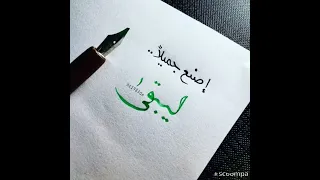 إصنع جميلاً..
ليبقىٰ
#scoompa